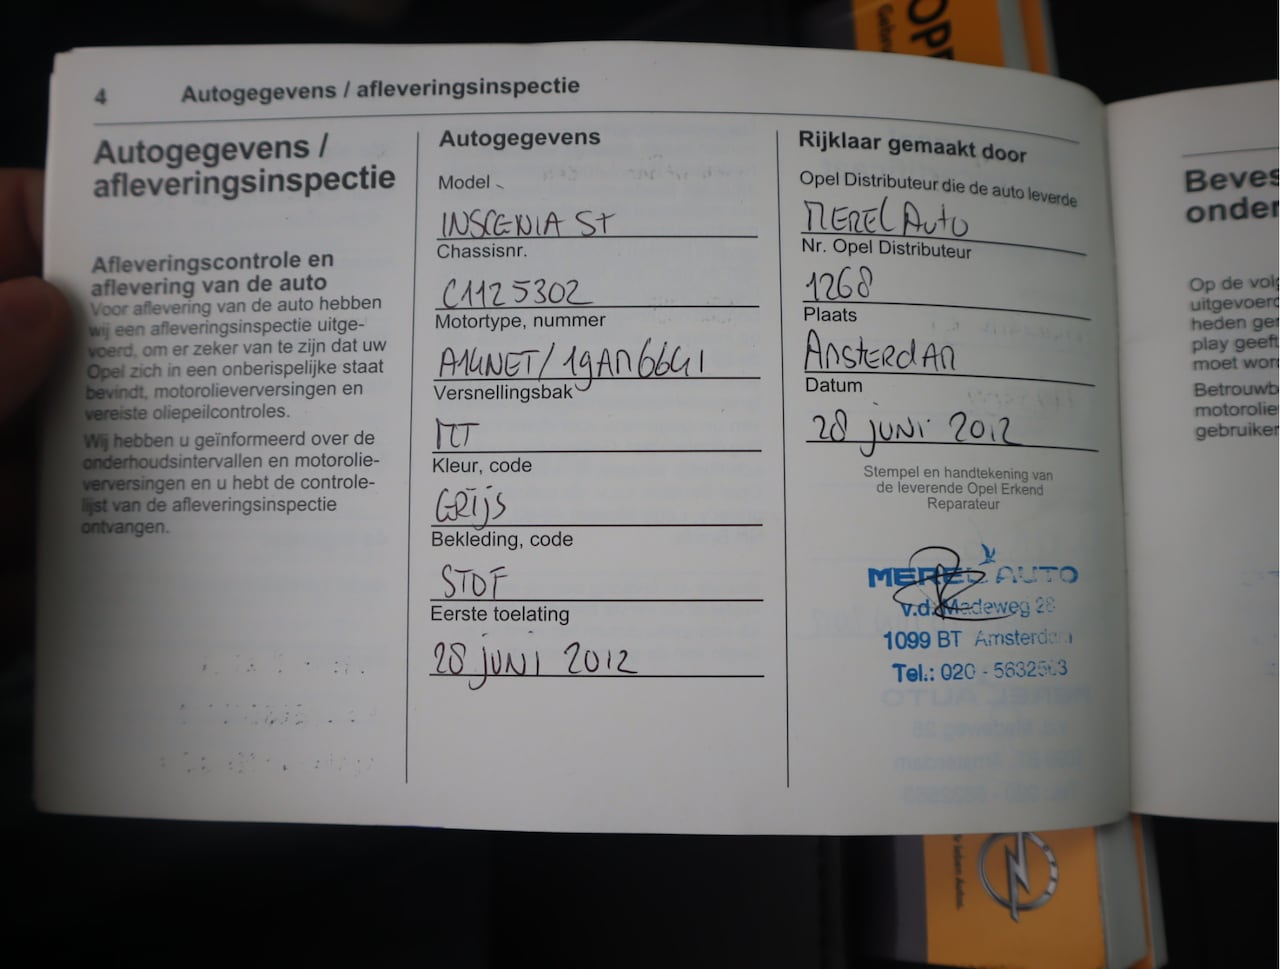 OPE
Gebru
4 Autogegevens / afleveringsinspectie
Autogegevens /
afleveringsinspectie
Afleveringscontrole en
aflevering van de auto
Voor aflevering van de auto hebben
wij een afleveringsinspectie uitge-
voerd, om er zeker van te zijn dat uw
Opel zich in een onberispelijke staat
bevindt, motorolieverversingen en
vereiste oliepeilcontroles.
Wij hebben u geïnformeerd over de
onderhoudsintervallen en motorolie-
verversingen en u hebt de controle-
lijst van de afleveringsinspectie
ontvangen.
Autogegevens
Model
INSIGNIA ST
Chassisnr.
C1125302
Motortype, nummer
A14NET/
Versnellingsbak
MT
Kleur, code
GRijs
Bekleding, code
STOF
Eerste toelating
28 juni 2012
Rijklaar gemaakt door
Opel Distributeur die de auto leverde
MEREL Auto
Nr. Opel Distributeur
1268
Plaats
AMSTERDAM
Datum
28 juni 2012
Stempel en handtekening van
de leverende Opel Erkend
Reparateur
MEREL AUTO
v.d. Madeweg 28
1099 BT Amsterdam
Tel.: 020 -
Beves
onder
Op de volg
uitgevoerd
heden ge
play geeft
moet wor
Betrouwb
motorolie
gebruiker